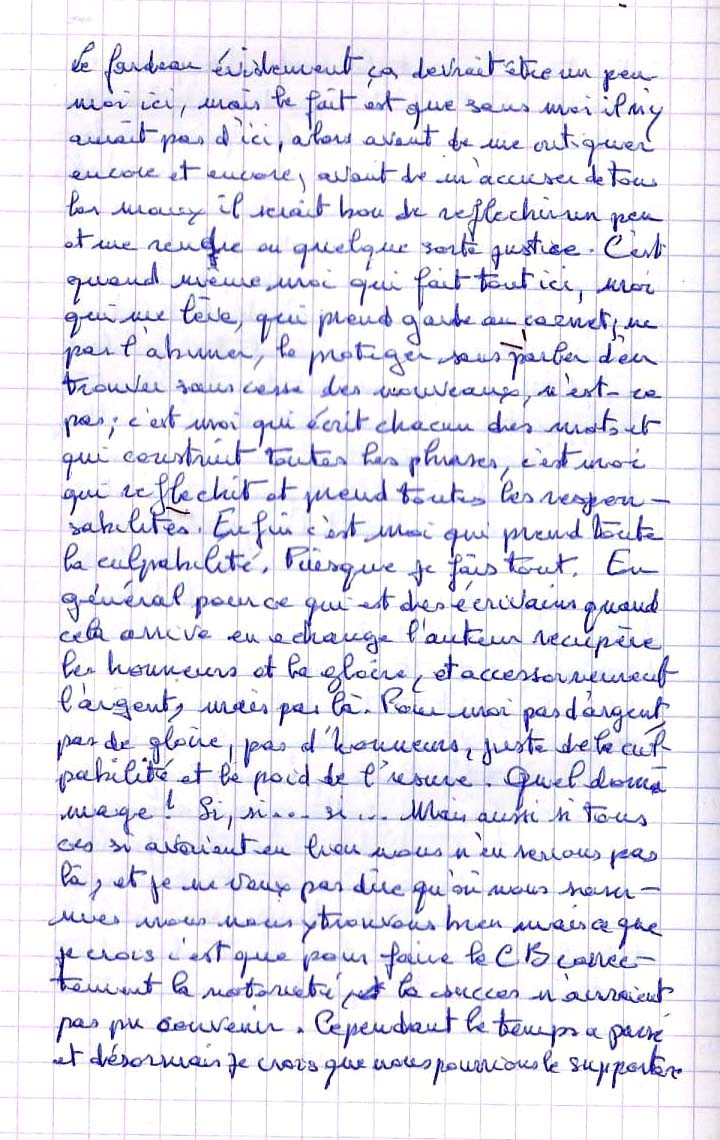 Le fardeau évidement ça devrait être un peu
moi ici, mais le fait est que sans moi il n'y
aurait pas d'ici, alors avant de me critiquer
encore et encore, avant de m'accuser de tous
les maux il serait bon de reflechir un peu
et me rendre en quelque sorte justice. C'est
quand même moi qui fait tout ici, moi
qui me lève, qui prend garde au carnet, ne
pas l'abimer, le proteger sans parler d'en
trouver sans cesse des nouveaux, n'est-ce
pas; c'est moi qui écrit chacun des mots et
qui construit toutes les phrases, c'est moi
qui reflechit et prend toutes les respon-
sabilités. Enfin c'est moi qui prend toute
la culpabilité. Puisque je fais tout. En
général pour ce qui est des écrivains quand
cela arrive en echange l'auteur recupère
les honneurs et la gloire, et accessoirement
l'argent, mais pas là. Pour moi pas d'argent,
pas de gloire, pas d'honneurs, juste de la cul-
pabilité et le poid de l'œuvre. Quel dom-
mage! Si, si... si... Mais aussi si tous
ces si avaient eu lieu nous n'en serions pas
là, et je ne veux pas dire qu'où nous som-
mes nous nous y trouvons bien mais ce que
je crois c'est que pour faire le CB correc-
tement la notorieté et le succes n'auraient
pas pu convenir. Cependant le temps a passé
et désormais je crois que nous pourrions le supporter